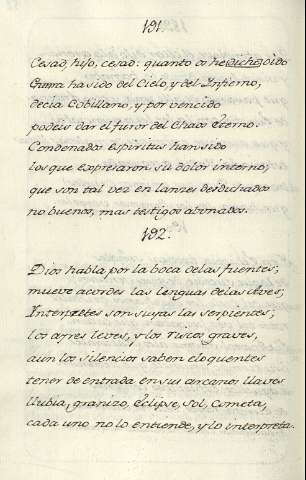 191.
Cesad, hijo, cesad: quanto os he dicho oido
Guerra ha sido del Cielo, y del Infierno,
decia Cobillano, y por vencido
podeis dar el furor del Chaos Eterno.
Condenados espiritus han sido
los que expresaron su dolor interno,
que son tal vez en lances desdichados
no buenos, mas testigos abonados.
192.
Dios habla por la boca de las fuentes,
mueve acordes las lenguas de las Aves;
Interpretes son suyas las serpientes;
los ayres leves, y los riscos graves,
aun los silencios saben eloquentes
tener de entrada en sus arcanos llaves
llubia, granizo, Eclipse, Sol, Cometa,
cada uno no lo entiende, y lo interpreta.